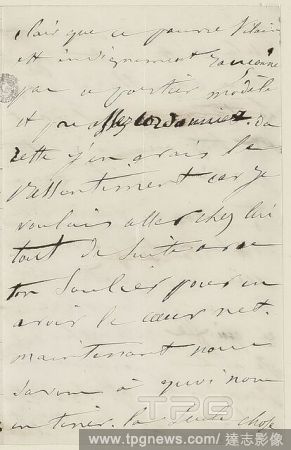 clair que ce pauvre Vilain
est indignement rançonné
par ce portier modèle
et peu cordonnier. du
reste j'en avais le
pressentiment car je
voulais aller chez lui
tout de suite avec
ton soulier pour en
avoir le cœur net.
maintenant nous
savons à quoi nous
en tenir. la seule chose
TPG
www.tpgnews.com / 達志影像